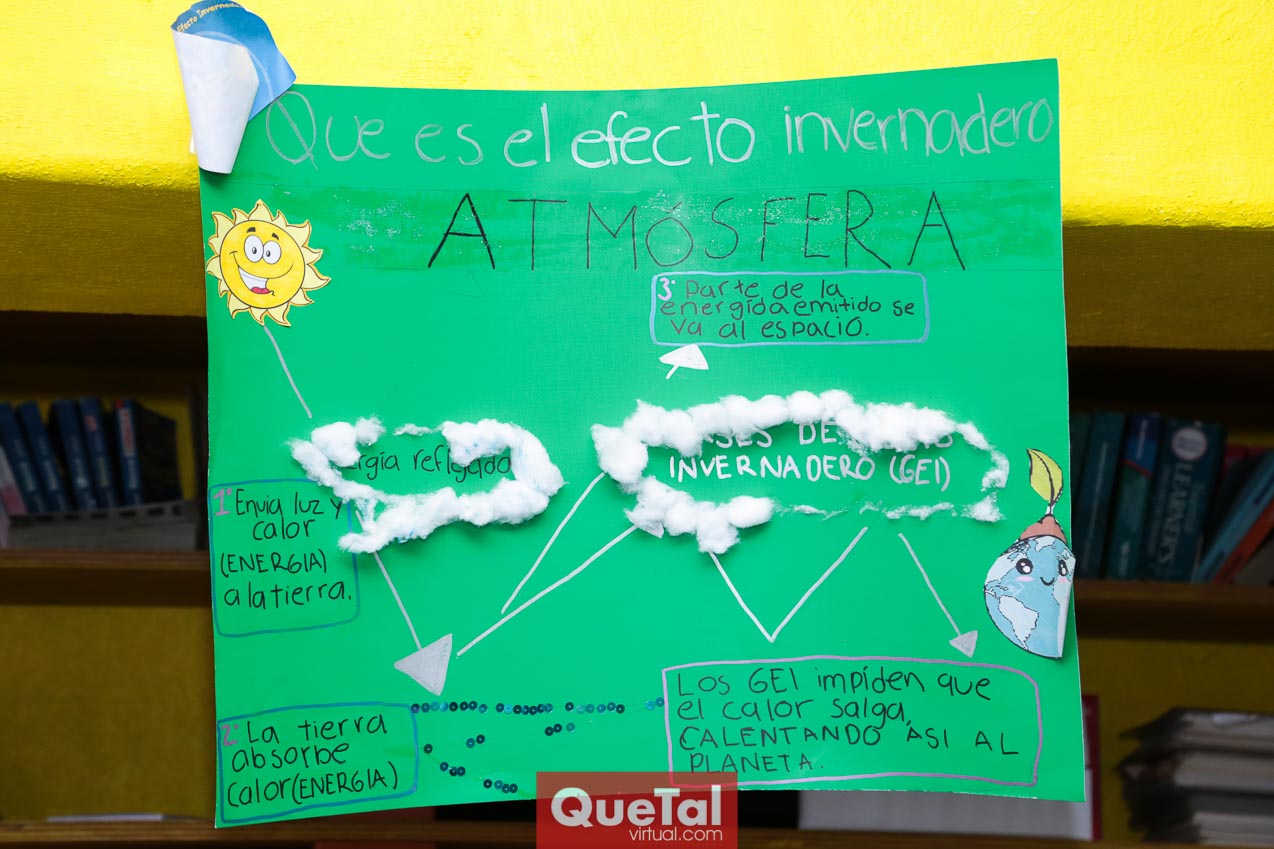 Efecto Invernade
Que es el efecto invernadero
ATMÓSFERA
3° Parte de la
energida emitido se
va al espacio.
ergía reflejado
GASES DE
INVERNADERO (GEI)
1° Envia luz y
calor
(ENERGIA)
a la tierra.
2° La tierra
absorbe
calor (ENERGIA)
LOS GEI impiden que
el calor salga,
CALENTANDO ASI AL
PLANETA.
LEARNER'S
QueTal
virtual.com